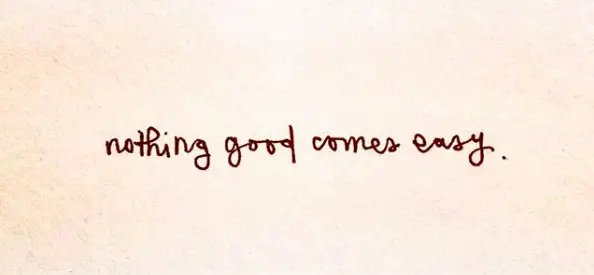 nothing good comes easy.